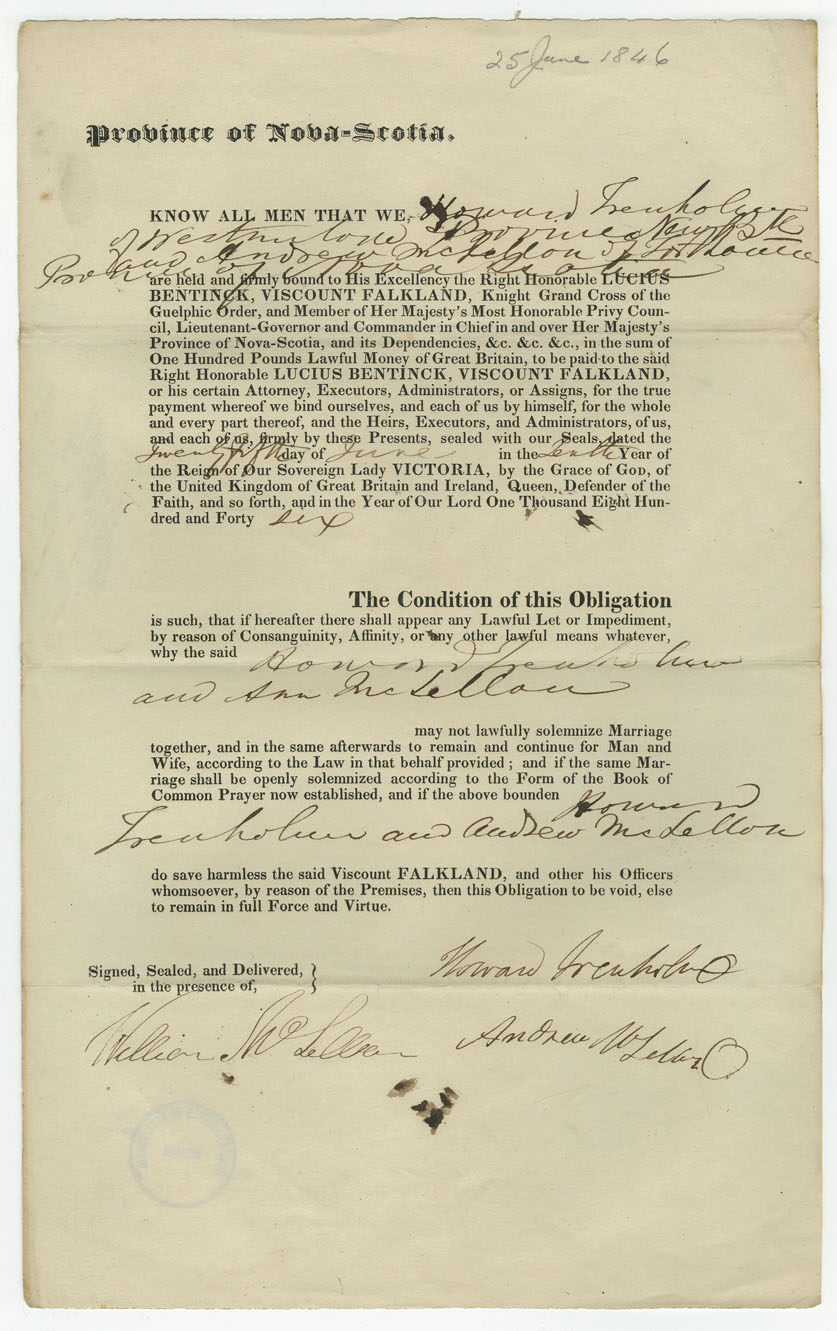 25 June 1846
Province of Nova-Scotia.
KNOW ALL MEN THAT WE, Howard Trenholm
of Westmorland Province New Bk
and Andrew McLellon of
Province of Nova Scotia
are held and firmly bound to His Excellency the Right Honorable LUCIUS
BENTINCK, VISCOUNT FALKLAND, Knight Grand Cross of the
Guelphic Order, and Member of Her Majesty's Most Honorable Privy Coun-
cil, Lieutenant-Governor and Commander in Chief in and over Her Majesty's
Province of Nova-Scotia, and its Dependencies, &c. &c. &c., in the sum of
One Hundred Pounds Lawful Money of Great Britain, to be paid to the said
Right Honorable LUCIUS BENTINCK, VISCOUNT FALKLAND,
or his certain Attorney, Executors, Administrators, or Assigns, for the true
payment whereof we bind ourselves, and each of us by himself, for the whole
and every part thereof, and the Heirs, Executors, and Administrators, of us,
and each of us, firmly by these Presents, sealed with our Seals, dated the
Twenty fifth day of June in the tenth Year of
the Reign of Our Sovereign Lady VICTORIA, by the Grace of GOD, of
the United Kingdom of Great Britain and Ireland, Queen, Defender of the
Faith, and so forth, and in the Year of Our Lord One Thousand Eight Hun-
dred and Forty six
The Condition of this Obligation
is such, that if hereafter there shall appear any Lawful Let or Impediment,
by reason of Consanguinity, Affinity, or any other lawful means whatever,
why the said Howard Trenholm
and Ann McLellon
may not lawfully solemnize Marriage
together, and in the same afterwards to remain and continue for Man and
Wife, according to the Law in that behalf provided ; and if the same Mar-
riage shall be openly solemnized according to the Form of the Book of
Common Prayer now established, and if the above bounden Howard
Trenholm and Andrew McLellon
do save harmless the said Viscount FALKLAND, and other his Officers
whomsoever, by reason of the Premises, then this Obligation to be void, else
to remain in full Force and Virtue.
Howard Trenholm
Signed, Sealed, and Delivered,
in the presence of,
William McLellan
Andrew McLellan